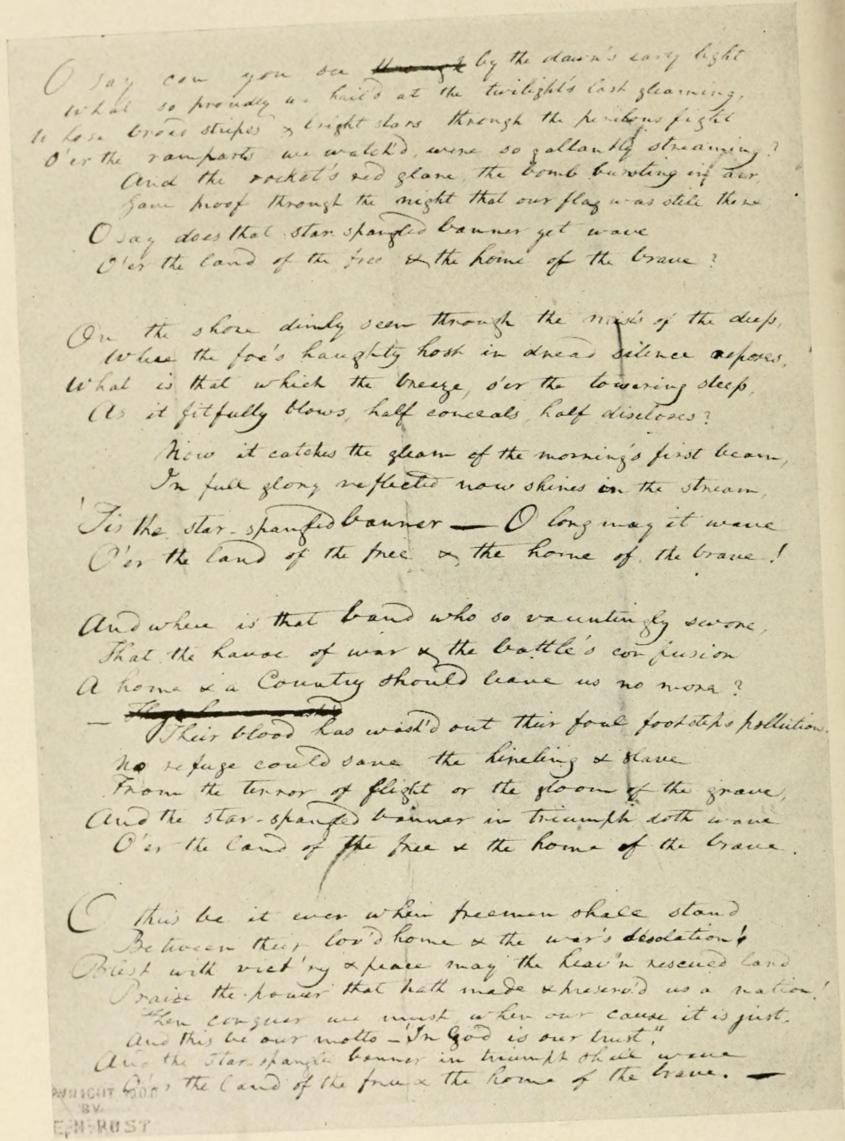 O say can you see ~~through~~ by the dawn's early light
What so proudly we hail'd at the twilight's last gleaming,
Whose broad stripes & bright stars through the perilous fight
O'er the ramparts we watch'd, were so gallantly streaming?
And the rocket's red glare, the bomb bursting in air,
Gave proof through the night that our flag was still there
O say does that star spangled banner yet wave
O'er the land of the free & the home of the brave?
On the shore dimly seen through the mists of the deep,
Where the foe's haughty host in dread silence reposes,
What is that which the breeze, o'er the towering steep,
As it fitfully blows, half conceals, half discloses?
Now it catches the gleam of the morning's first beam,
In full glory reflected now shines in the stream,
'Tis the star-spangled banner — O long may it wave
O'er the land of the free & the home of the brave!
And where is that band who so vauntingly swore,
That the havoc of war & the battle's confusion
A home & a Country should leave us no more?
—
Their blood has wash'd out their foul footsteps pollution.
No refuge could save the hireling & slave
From the terror of flight or the gloom of the grave,
And the star-spangled banner in triumph doth wave
O'er the land of the free & the home of the brave.
O thus be it ever when freemen shall stand
Between their lov'd home & the war's desolation!
Blest with vict'ry & peace may the heav'n rescued land
Praise the power that hath made & preserv'd us a nation!
Then conquer we must, when our cause it is just,
And this be our motto — "In God is our trust,"
And the star-spangled banner in triumph shall wave
O'er the land of the free & the home of the brave. —
BY
E. H. RUST